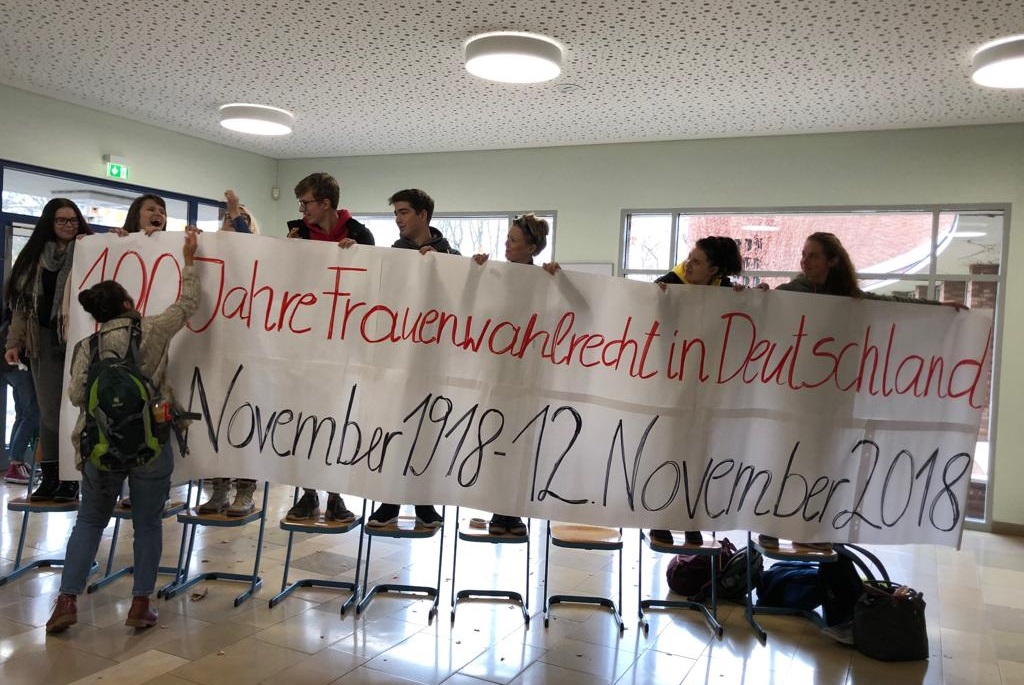 100 Jahre Frauenwahlrecht in Deutschland
November 1918 - 12. November 2018